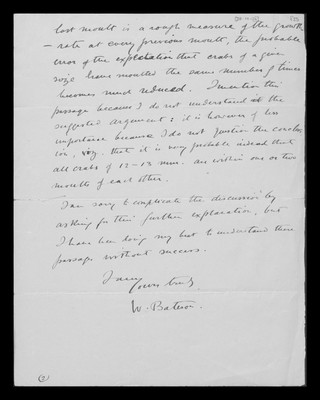 last moult is a rough measure of the growth
- rate at every previous moult, the probable
error of the expectation that crabs of a given
size have moulted the same number of times
becomes much reduced. I mention this
passage because I do not understand the
suggested argument: it is however of less
importance because I do not question the conclus
ion, viz. that it is very probable indeed that
all crabs of 12-13 mm. are within one or two
moults of each other.
I am sorry to complicate the discussion by
asking for this further explanation, but
I have been doing my best to understand these
passages without success.
I am
Yours truly
W. Bateson.